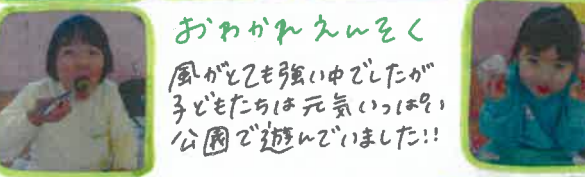 おわかれえんそく
風がとても強い中でしたが
子どもたちは元気いっぱい
公園で遊んでいました!!